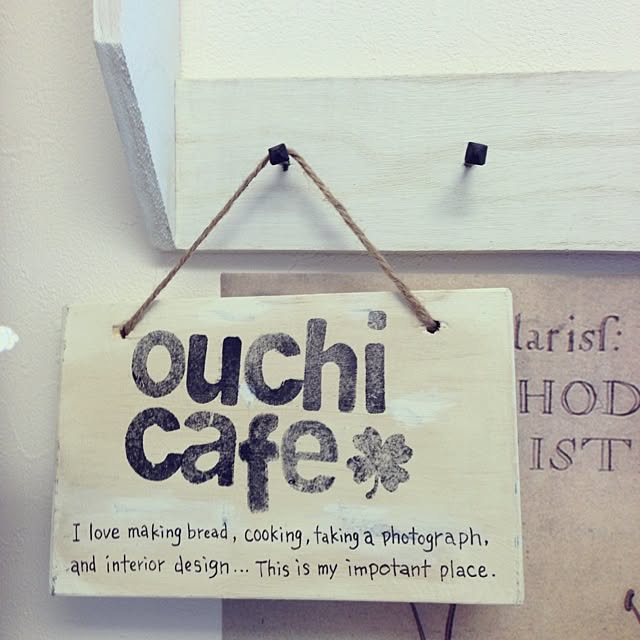 ouchi
cafe
I love making bread, cooking, taking a photograph,
and interior design... This is my impotant place.
larisſ:
HOD
IST